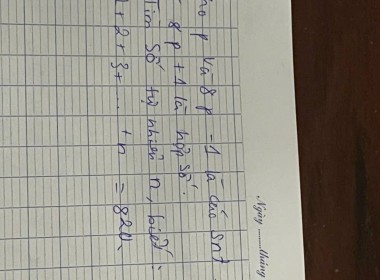 Ngày ........tháng
p và 8p - 1 là các snt.
8p + 1 là hợp số.
Tìm số tự nhiên n, biết :
1 + 2 + 3 + ... + n = 820.